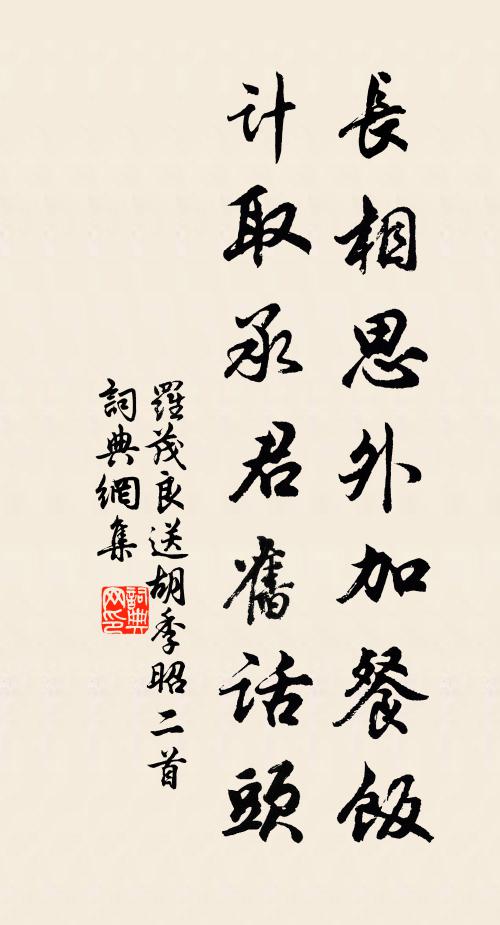 長相思外加餐飯
計取承君舊話頭
羅茂良送胡季昭二首
詞典網集
詞典网印